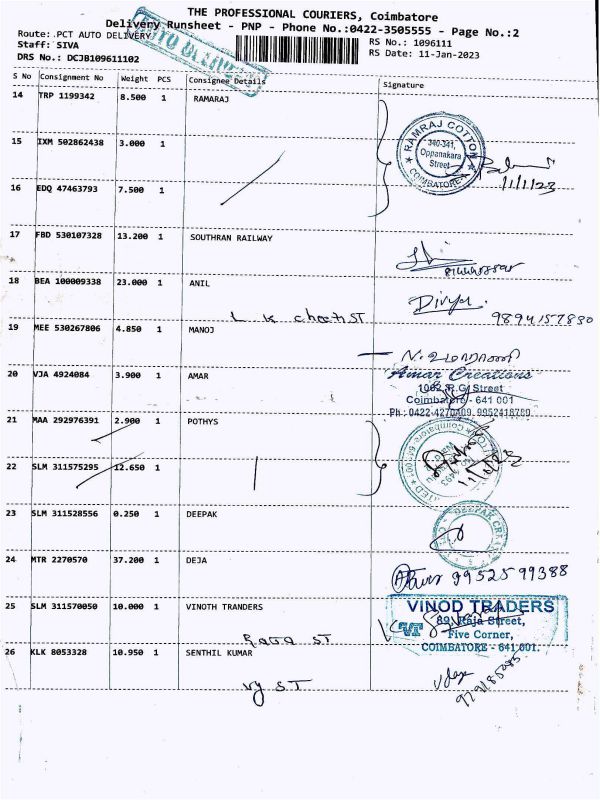 THE PROFESSIONAL COURIERS, Coimbatore
Delivery Runsheet - PNP - Phone No.:0422-3505555 - Page No.:2
Route: .PCT AUTO DELIVERY
RS No.: 1096111
Staff: SIVA
RS Date: 11-Jan-2023
DRS No.: DCJB109611102
S No Consignment No Weight PCS Consignee Details Signature
14 TRP 1199342 8.500 1 RAMARAJ
RAMRAJ COTTON
340-341,
Oppanakara
Street
COIMBATORE
15 IXM 502862438 3.000 1
11/1/23
16 EDQ 47463793 7.500 1
17 FBD 530107328 13.200 1 SOUTHRAN RAILWAY
18 BEA 100009338 23.000 1 ANIL
Divya.
9894157830
19 MEE 530267806 4.850 1 MANOJ
20 VJA 4924084 3.900 1 AMAR
Amar Creations
Street
Coimbatore - 641 001
21 MAA 292976391 2.900 1 POTHYS
22 SLM 311575295 12.650 1
23 SLM 311528556 0.250 1 DEEPAK
24 MTR 2270570 37.200 1 DEJA
9952599388
25 SLM 311570050 10.000 1 VINOTH TRANDERS
VINOD TRADERS
VT
89, Raja Street,
Five Corner,
COIMBATORE - 641 001.
Raja ST
26 KLK 8053328 10.950 1 SENTHIL KUMAR
Vy ST